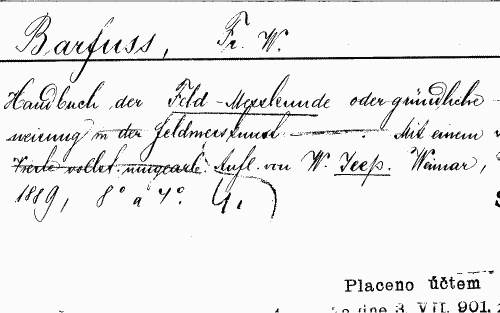 Barfuss, Fr. W.
Handbuch der Feld-Messkunde oder gründliche
weisung in der Feldmesskunst Mit einem
Vierte vollst. umgearb. Aufl. von W. Jeep. Weimar,
1889, 8° a 4°. 4.
Placeno účtem
dne 3. VII. 901.